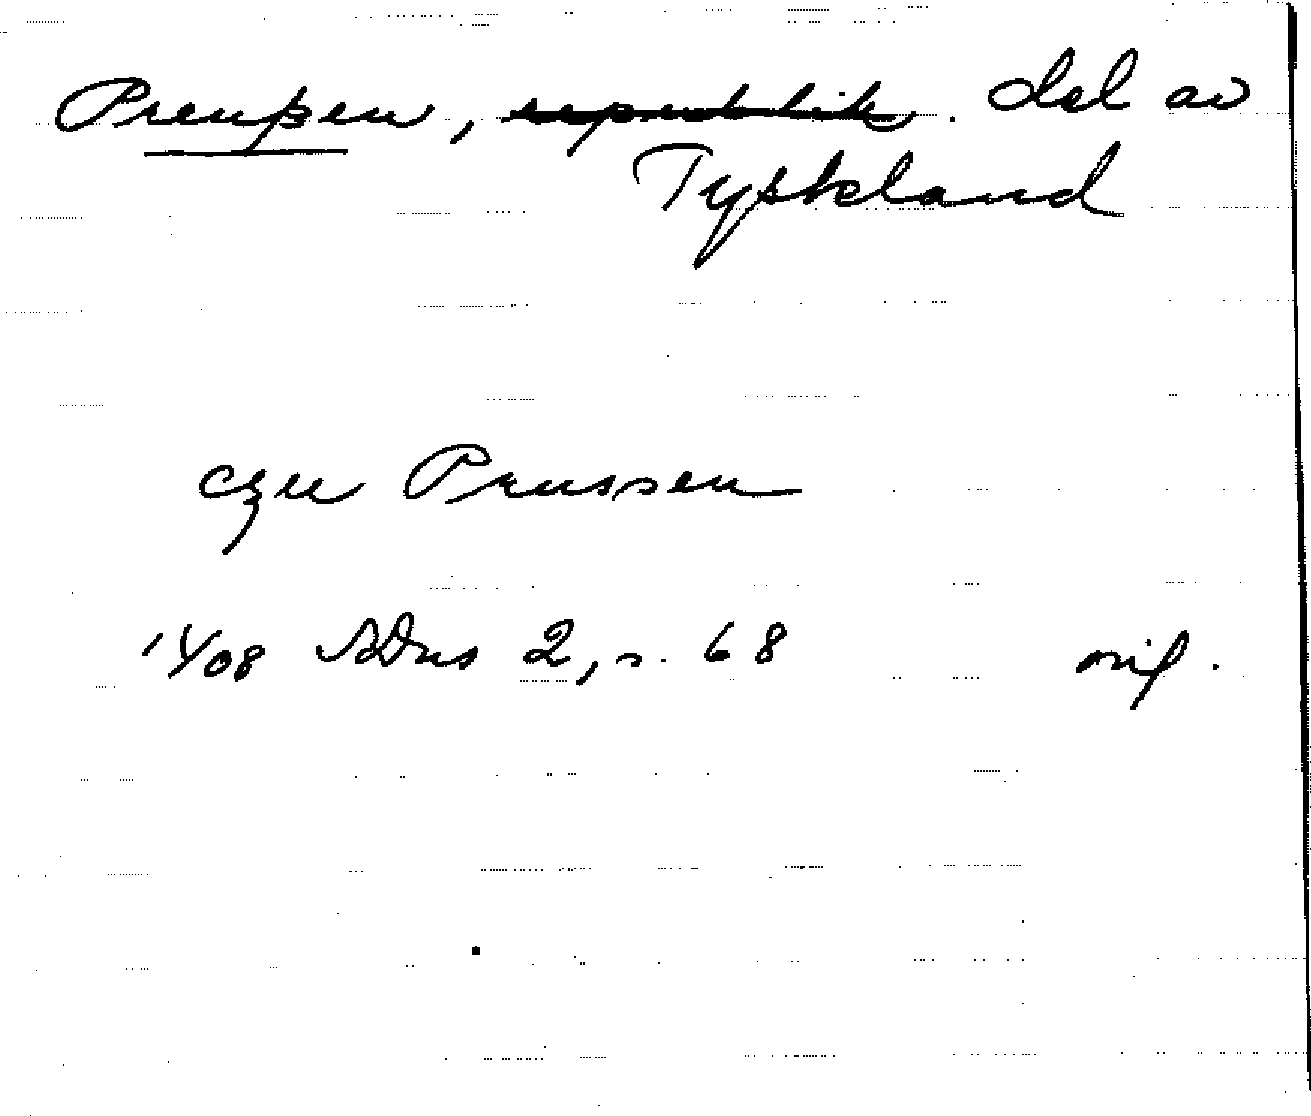 Preußen, republik. del av
Tyskland
czu Prussen
1408 SDns 2, s. 68 orig.